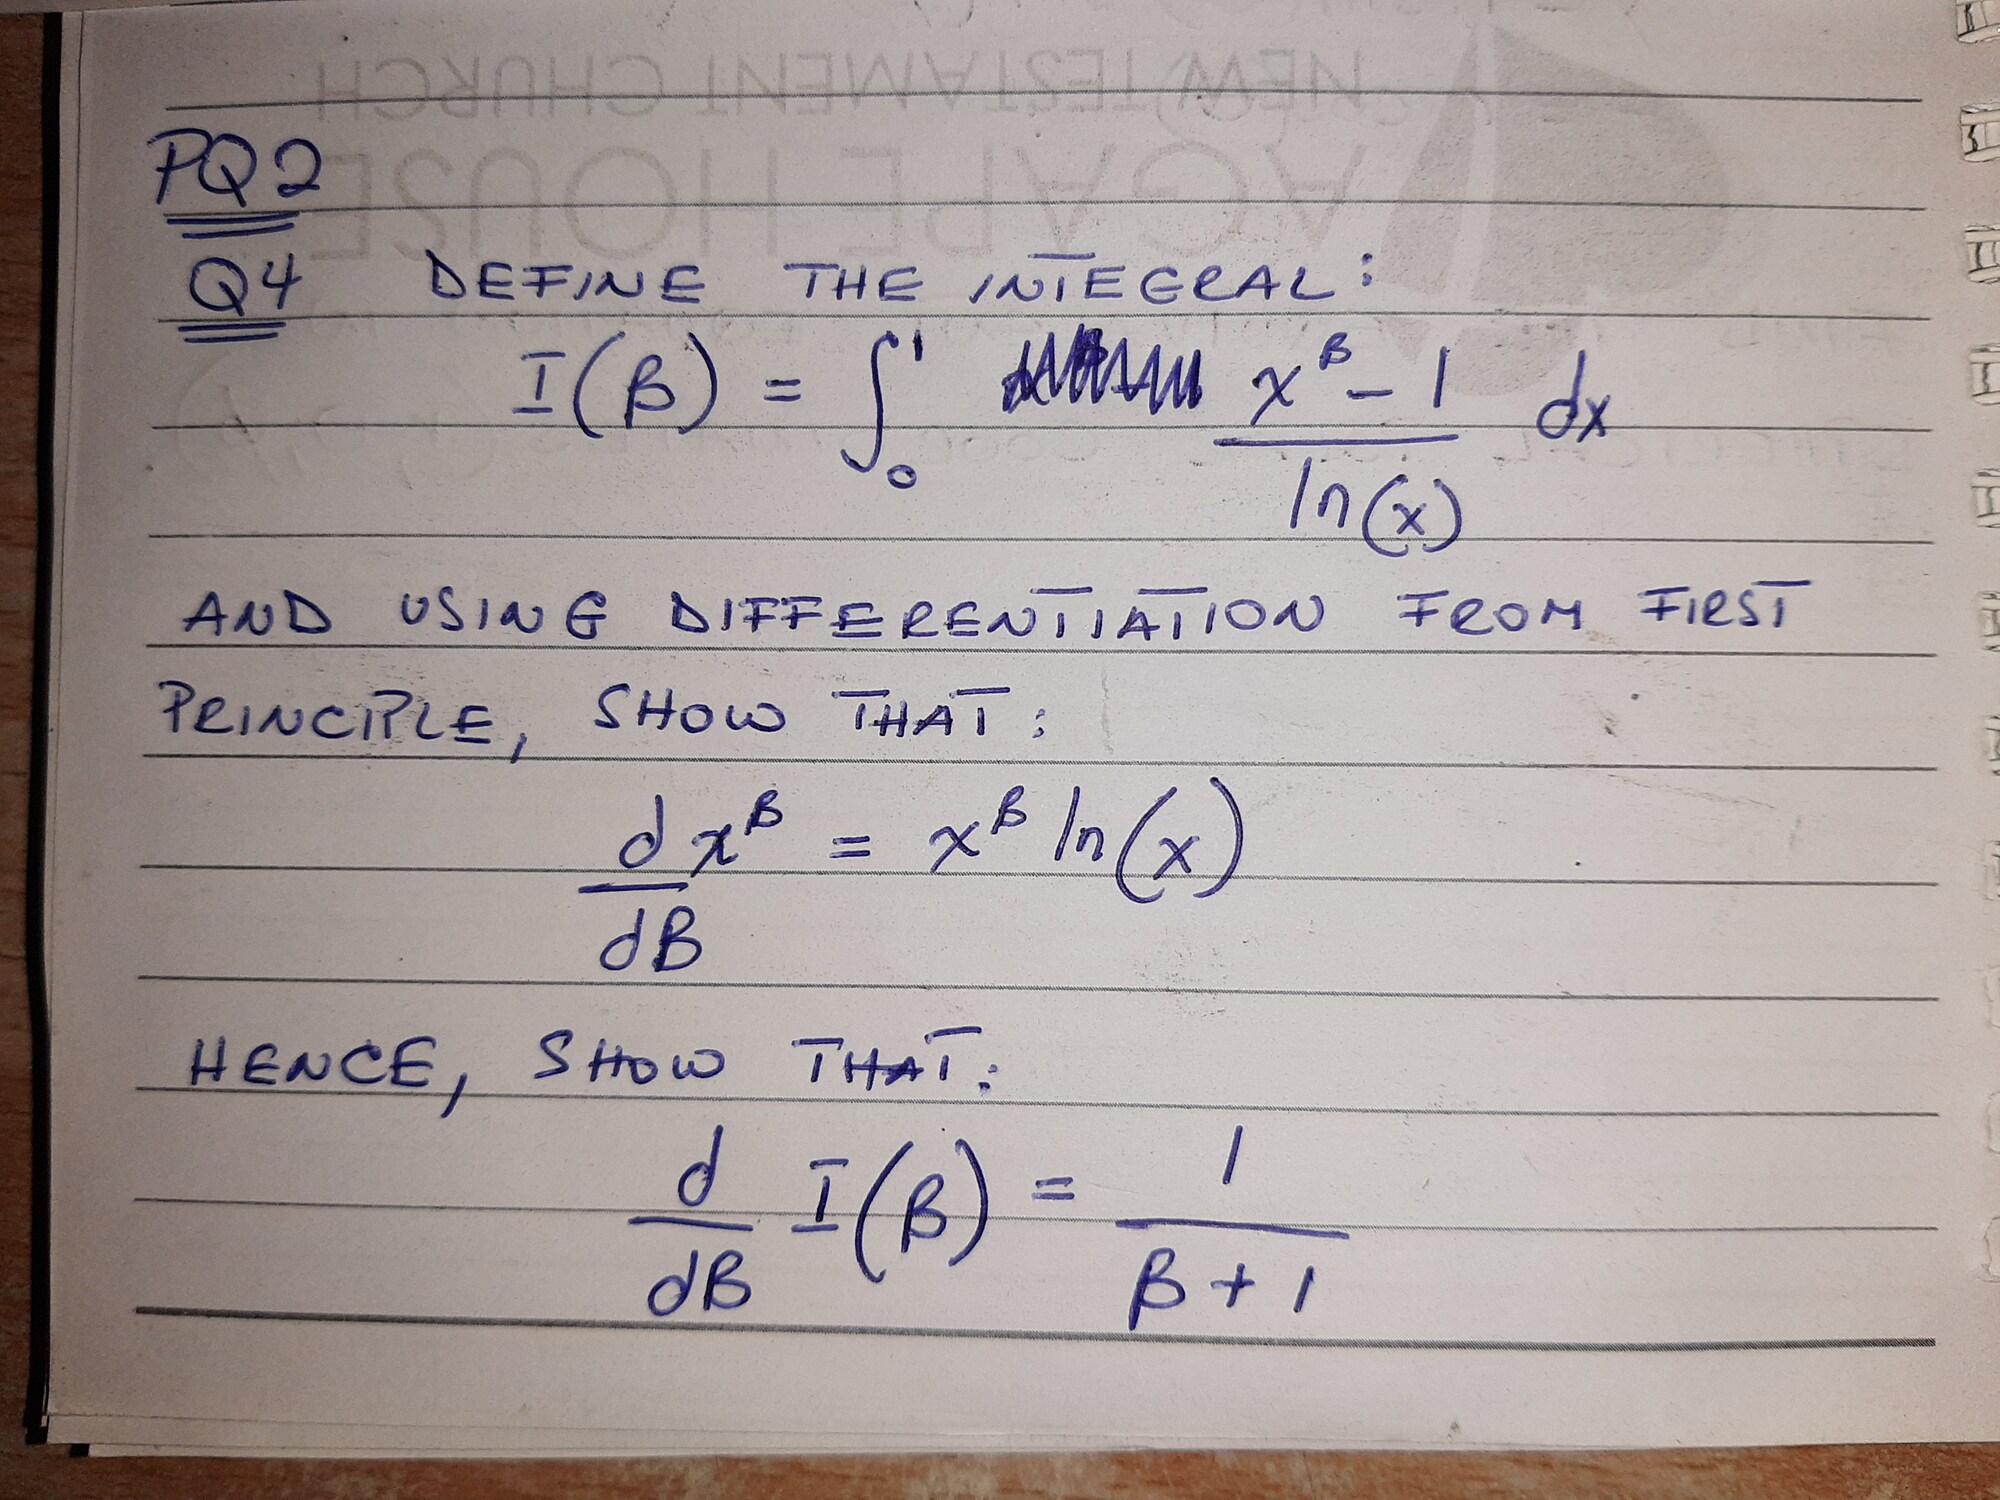 NEW TESTAMENT CHURCH
AGAPE HOUSE
PQ2
Q4 DEFINE THE INTEGRAL:
I(β) = ∫₀¹ (x^β - 1)/ln(x) dx
AND USING DIFFERENTIATION FROM FIRST
PRINCIPLE, SHOW THAT:
d/dβ x^β = x^β ln(x)
HENCE, SHOW THAT:
d/dβ I(β) = 1/(β + 1)